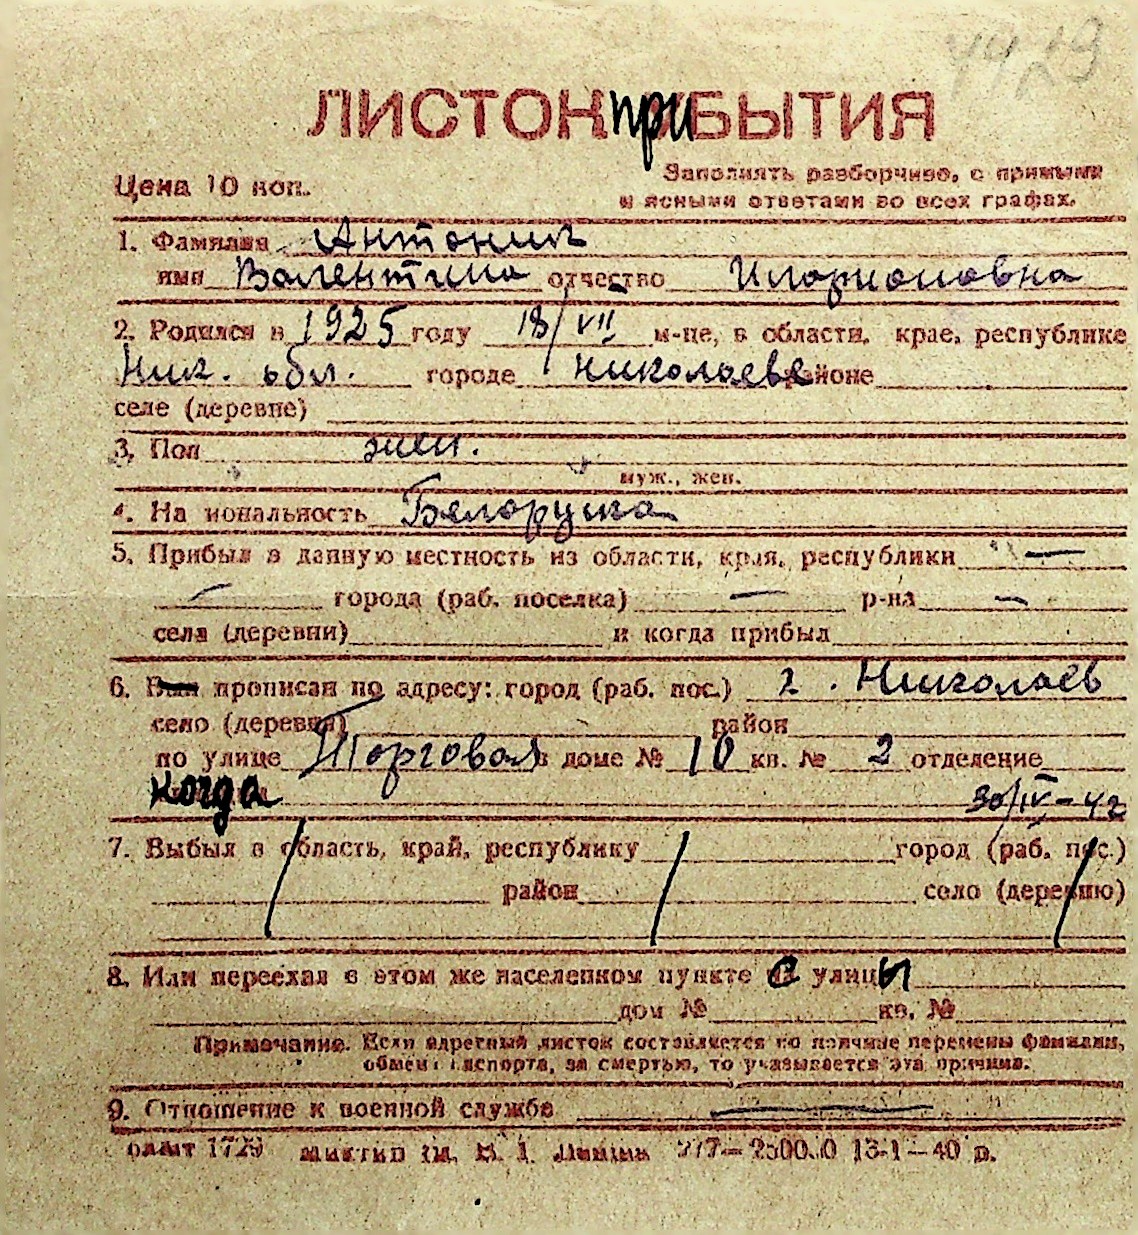 4429
ЛИСТОК при БЫТИЯ
Цена 10 коп.
Заполнять разборчиво, с прямыми
и ясными ответами во всех графах.
1. Фамилия Антоник
имя Валентина отчество Иларионовна
2. Родился в 1925 году 18/VII м-це, в области, крае, республике
Ник. обл. городе Николаеве районе
селе (деревне)
3. Пол жен.
муж., жен.
4. Национальность Белоруска
5. Прибыл в данную местность из области, края, республики —
— города (раб. поселка) — р-на —
села (деревни) и когда прибыл
6. Был прописан по адресу: город (раб. пос.) г. Николаев
село (деревня) район
по улице Торговая в доме № 10 кв. № 2 отделение
когда 30/IV-42
7. Выбыл в область, край, республику город (раб. пос.)
район село (деревню)
8. Или переехал в этом же населенном пункте с улицы
дом № кв. №
Примечание. Если адресный листок составляется по причине перемены фамилии,
обмена паспорта, за смертью, то указывается эта причина.
9. Отношение к военной службе —
1729 им. В. І. Леніна 13-1—40 р.